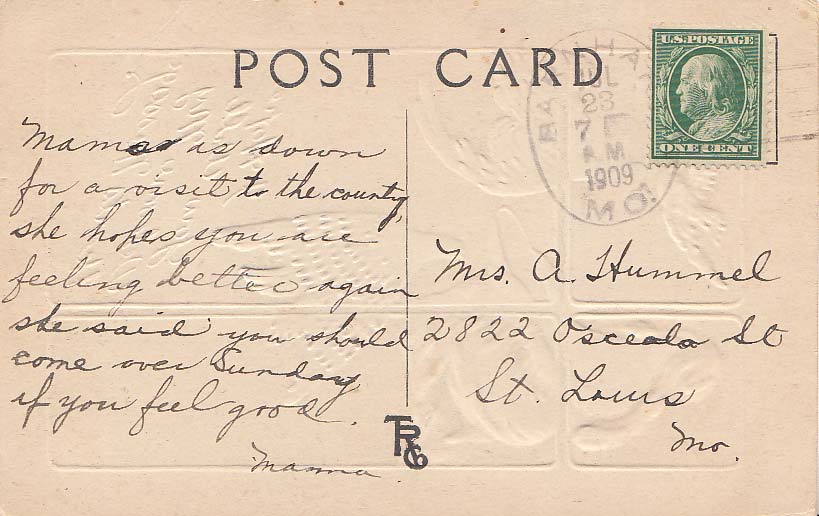 POST CARD
U.S. POSTAGE
ONE CENT
JUL
23
7
A.M
1909
MO.
Mama is down
for a visit to the county,
she hopes you are
feeling better again
she said you should
come over Sunday
if you feel good.
Mamma
Mrs. A. Hummel
2822 Osceola St
St. Louis
Mo.